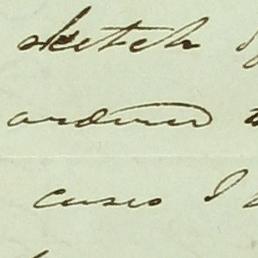 sketch of
ordered
cases I